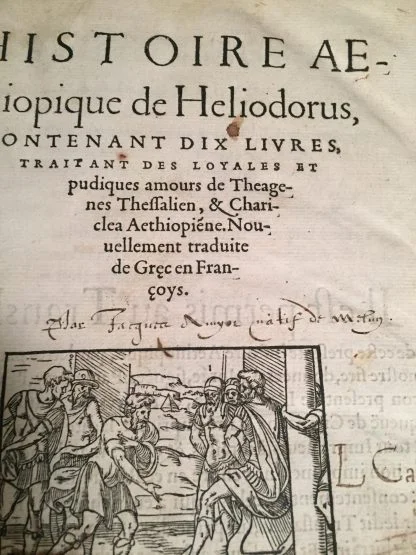 HISTOIRE AE-
iopique de Heliodorus,
ONTENANT DIX LIVRES,
TRAITANT DES LOYALES ET
pudiques amours de Theage-
nes Thessalien, & Chari-
clea Aethiopiéne. Nou-
uellement traduite
de Gręc en Fran-
çoys.
Par Jacques Amyot natif de Melun.